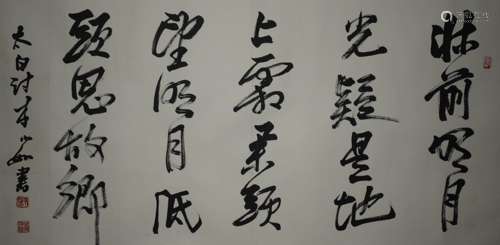 床前明月
光疑是地
上霜举头
望明月低
头思故乡
太白诗李少如书